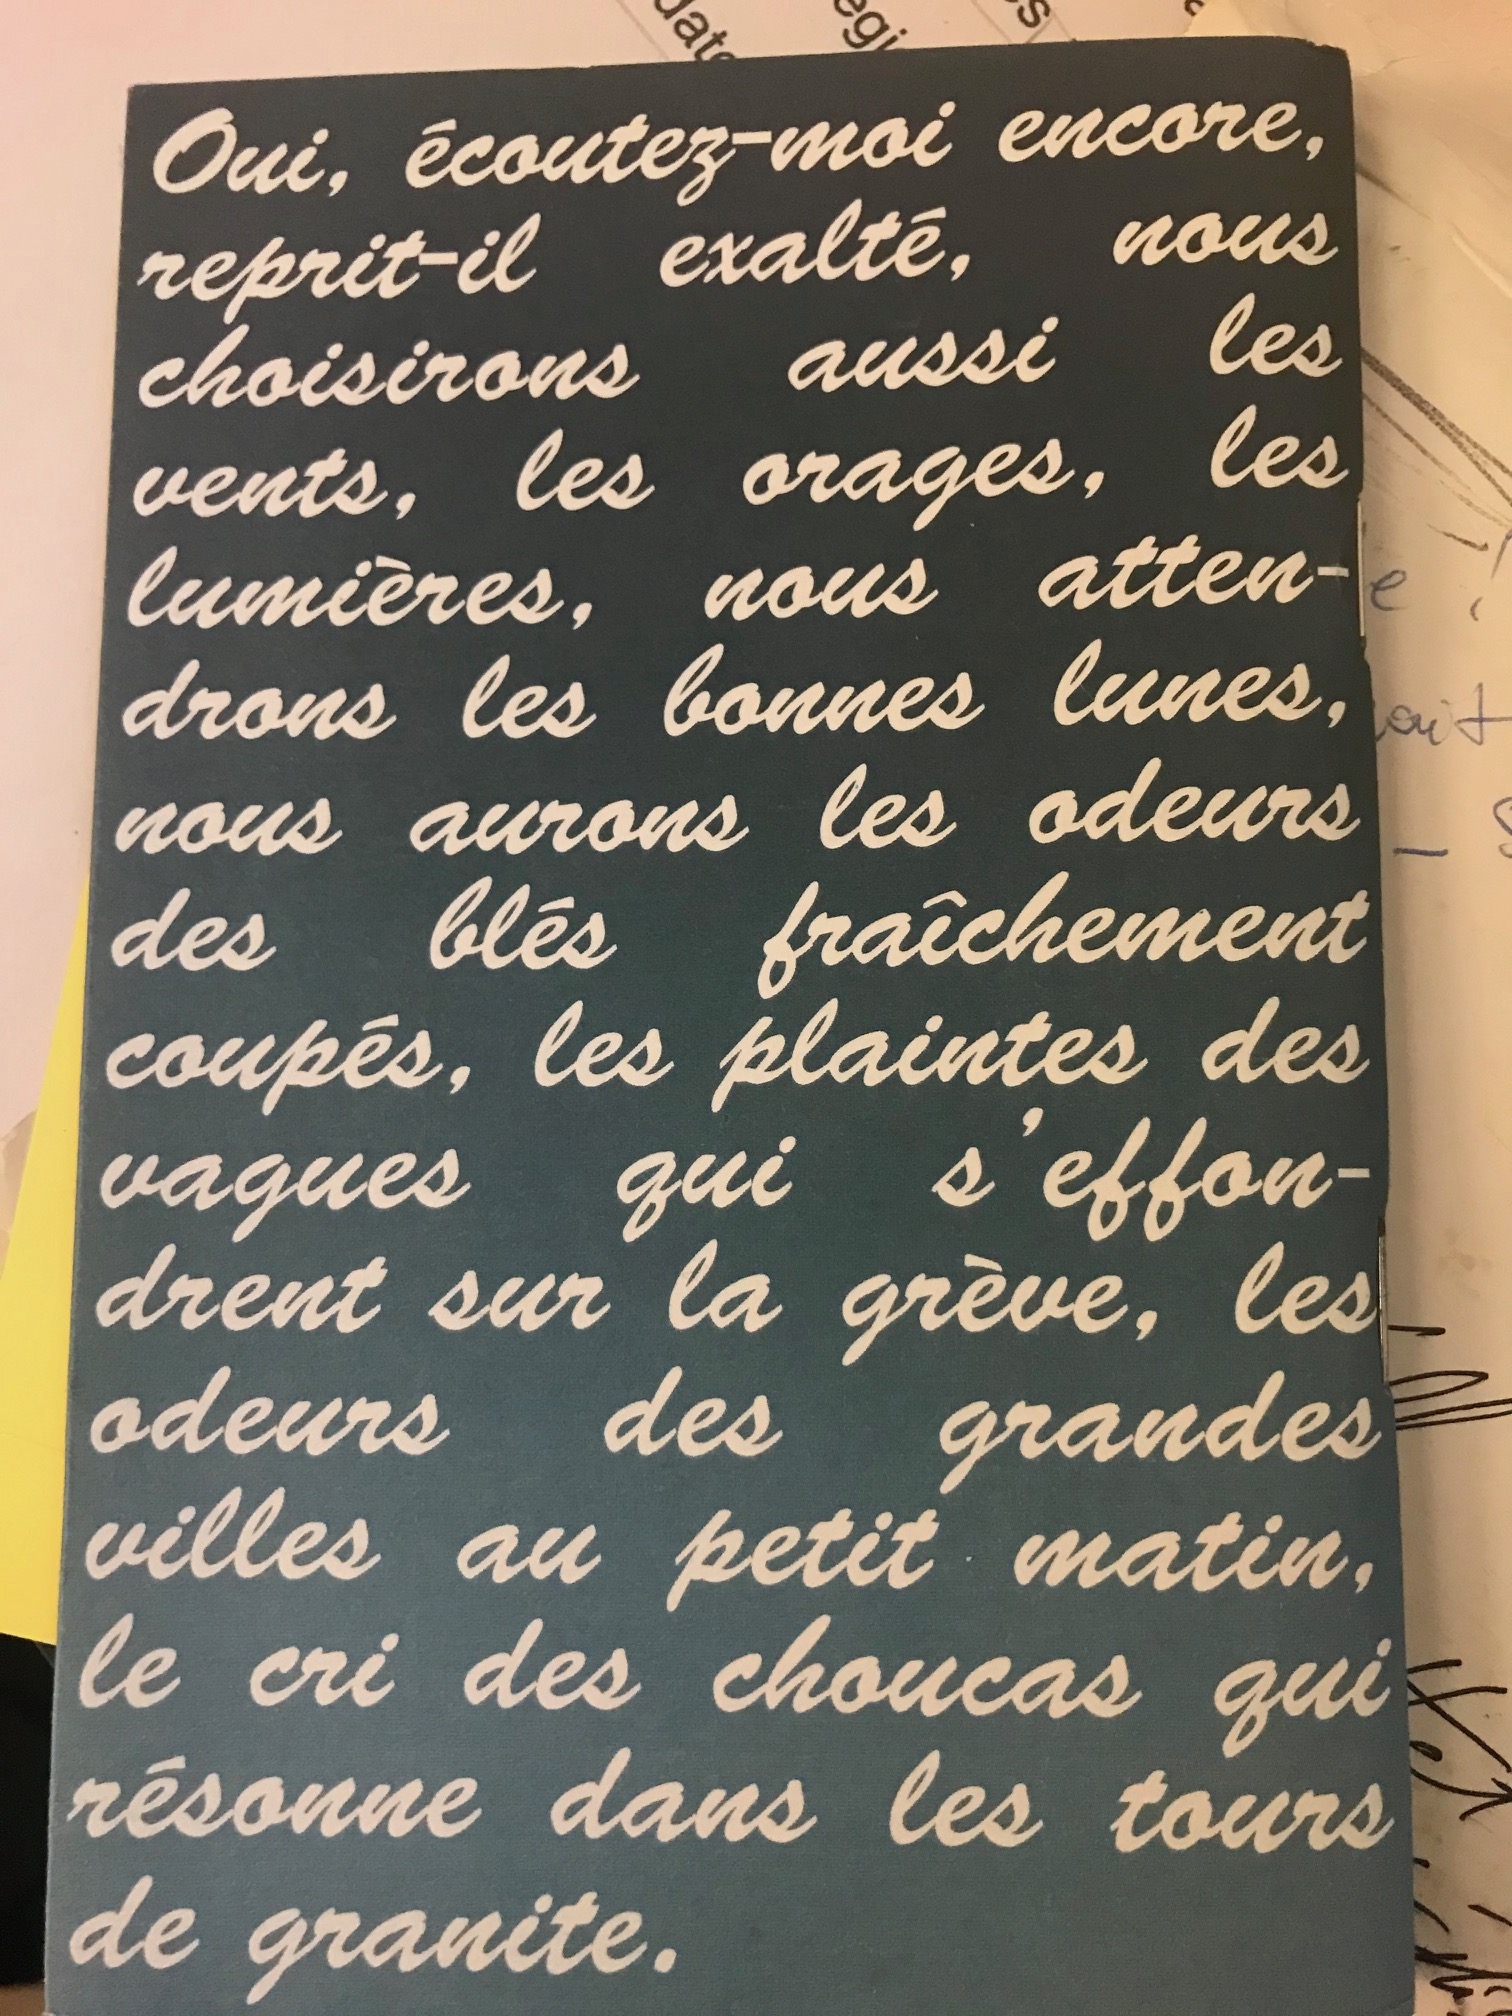 date
egi
es
Oui, écoutez-moi encore,
reprit-il exalté, nous
choisirons aussi les
vents, les orages, les
lumières, nous atten-
drons les bonnes lunes,
nous aurons les odeurs
des blés fraîchement
coupés, les plaintes des
vagues qui s'effon-
drent sur la grève, les
odeurs des grandes
villes au petit matin,
le cri des choucas qui
résonne dans les tours
de granite.